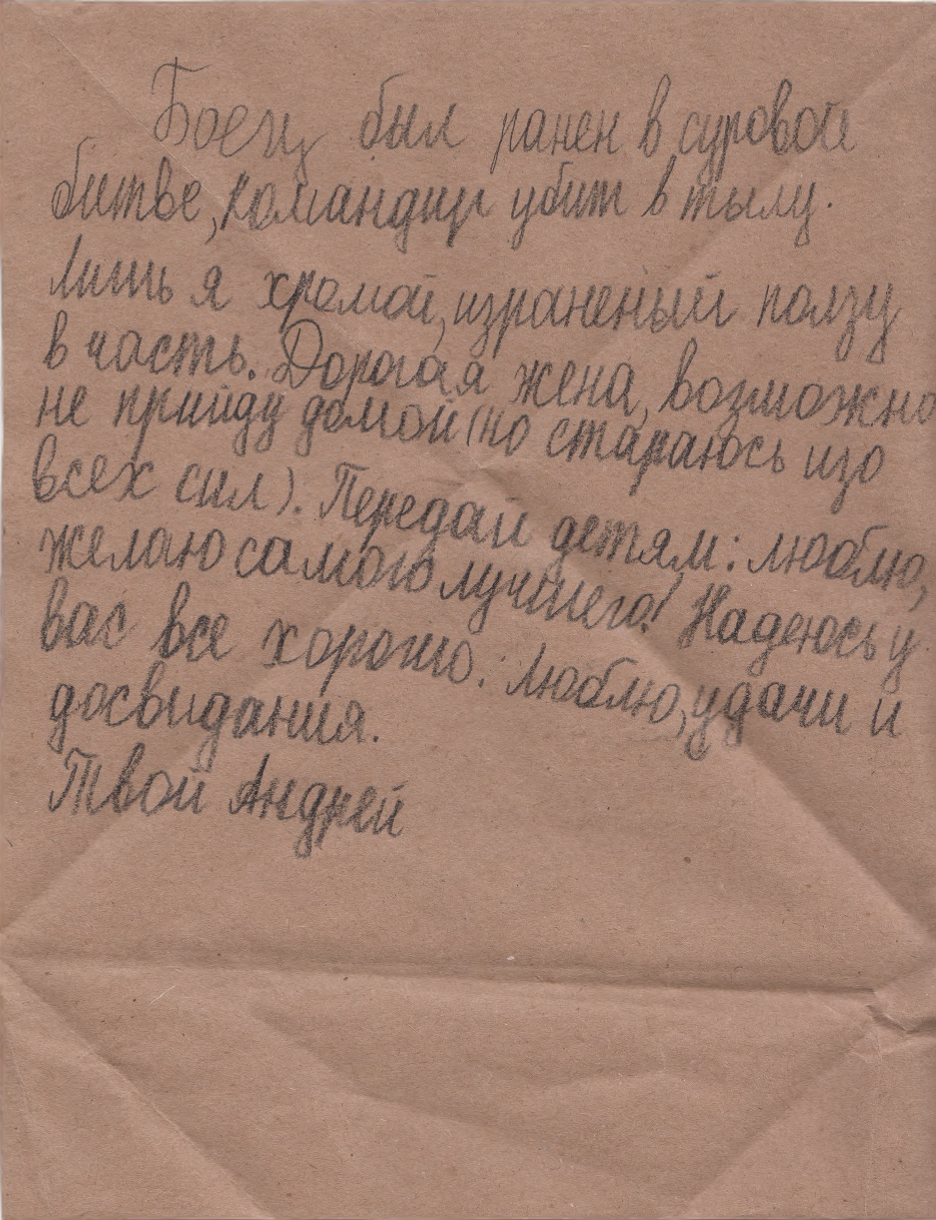 Боец был ранен в суровой
битве, командир убит в тылу.
Лишь я хромой, израненый ползу
в часть. Дорогая жена, возможно
не прийду домой (но стараюсь изо
всех сил). Передай детям: люблю,
желаю самого лучшего! Надеюсь у
вас все хорошо. Люблю, удачи и
досвидания.
Твой Андрей